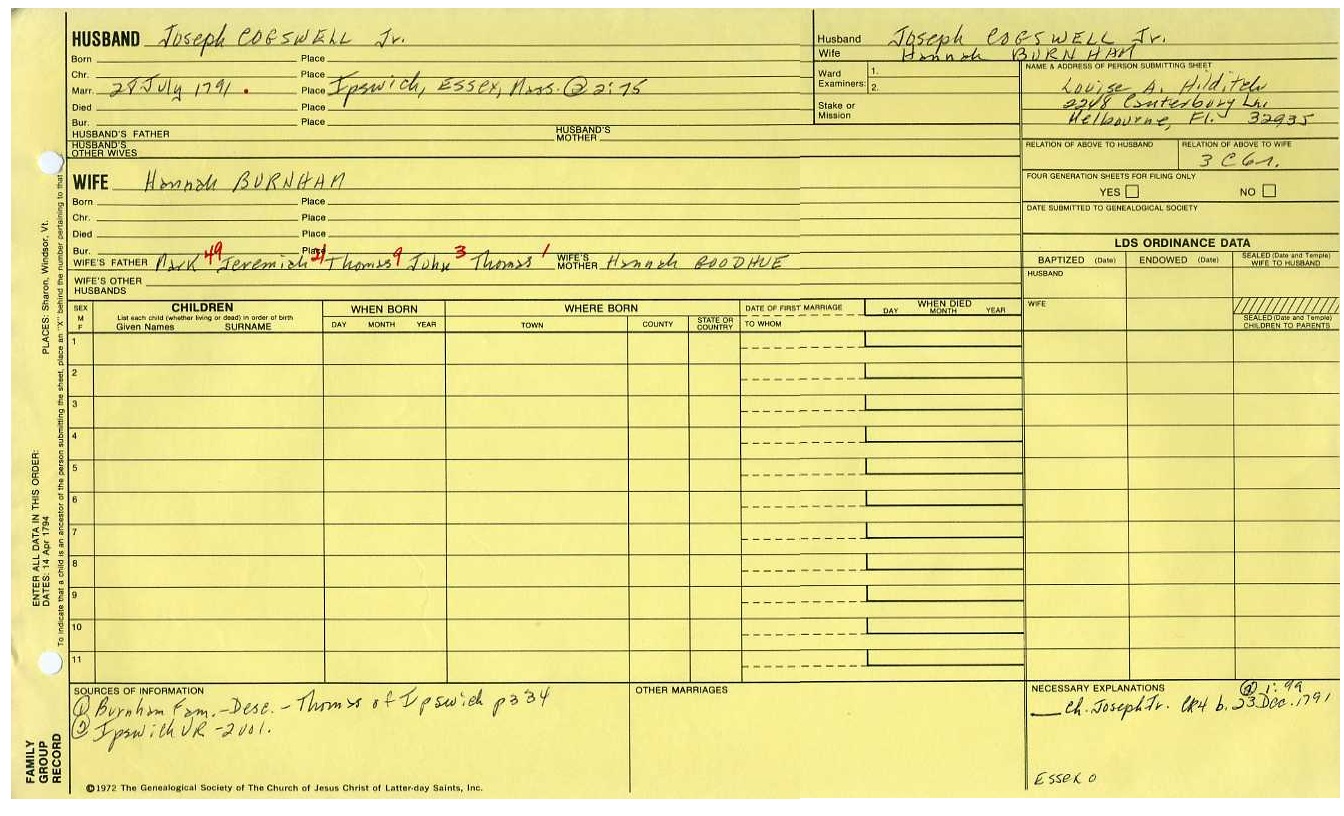 HUSBAND Joseph COGSWELL Jr.
Born Place
Chr. Place
Marr. 28 July 1791 . Place Ipswich, Essex, Mass. @ 2:75
Died Place
Bur. Place
HUSBAND'S FATHER HUSBAND'S MOTHER
HUSBAND'S OTHER WIVES
Husband Joseph COGSWELL Jr.
Wife Hannah BURNHAM
Ward Examiners: 1.
2.
Stake or Mission
NAME & ADDRESS OF PERSON SUBMITTING SHEET
Louise A. Hilditch
2248 Canterbury Ln.
Melbourne, Fl. 32935
RELATION OF ABOVE TO HUSBAND RELATION OF ABOVE TO WIFE
3 C 6 r.
FOUR GENERATION SHEETS FOR FILING ONLY
YES NO
DATE SUBMITTED TO GENEALOGICAL SOCIETY
WIFE Hannah BURNHAM
Born Place
Chr. Place
Died Place
Bur. Place
WIFE'S FATHER Mark 49 Jeremiah 21 Thomas 9 John 3 Thomas 1 WIFE'S MOTHER Hannah GOODHUE
WIFE'S OTHER HUSBANDS
LDS ORDINANCE DATA
BAPTIZED (Date) ENDOWED (Date) SEALED (Date and Temple) WIFE TO HUSBAND
HUSBAND
WIFE
SEALED (Date and Temple) CHILDREN TO PARENTS
SEX M F
CHILDREN
List each child (whether living or dead) in order of birth
Given Names SURNAME
WHEN BORN
DAY MONTH YEAR
WHERE BORN
TOWN COUNTY STATE OR COUNTRY
DATE OF FIRST MARRIAGE
TO WHOM
WHEN DIED
DAY MONTH YEAR
1
2
3
4
5
6
7
8
9
10
11
SOURCES OF INFORMATION
① Burnham Fam.-Desc.-Thomas of Ipswich p334
② Ipswich VR -2vol.
OTHER MARRIAGES
NECESSARY EXPLANATIONS
@ 1:99
Ch. Joseph Jr. CR4 b. 23 Dec. 1791
Essex o
©1972 The Genealogical Society of The Church of Jesus Christ of Latter-day Saints, Inc.
FAMILY GROUP RECORD
ENTER ALL DATA IN THIS ORDER:
DATES: 14 Apr 1794 PLACES: Sharon, Windsor, Vt.
To indicate that a child is an ancestor of the person submitting the sheet, place an "X" behind the number pertaining to that